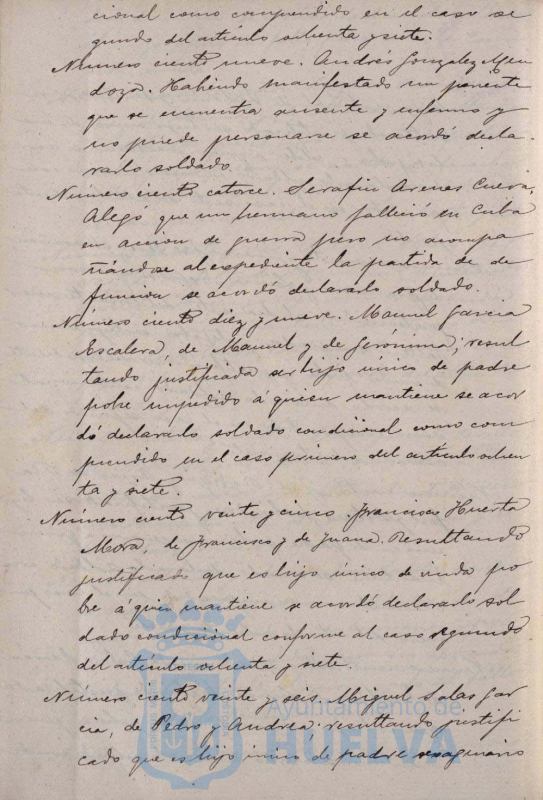 cional como comprendido en el caso se
gundo del artículo ochenta y siete.
Número ciento nueve. Andrés Gonzalez Men
doza. Habiendo manifestado un pariente
que se encuentra ausente y enfermo y
no puede personarse se acordó decla-
rarlo soldado.
Número ciento catorce. Serafin Arenes Cueva,
Alegó que un hermano falleció en Cuba
en acción de guerra pero no acompa
ñándose al expediente la partida de de
funcion se acordó declararlo soldado.
Número ciento diez y nueve. Manuel García
Escalera, de Manuel y de Gerónima; resul
tando justificada ser hijo único de padre
pobre impedido á quien mantiene se acor
dó declararlo soldado condicional como com
prendido en el caso primero del artículo ochen
ta y siete.
Número ciento veinte y cinco. Francisco Huerta
Mora, de Francisco y de Juana. Resultando
justificado que es hijo único de viuda po
bre á quien mantiene se acordó declararlo sol
dado condicional conforme al caso segundo
del artículo ochenta y siete.
Número ciento veinte y seis. Miguel Salas Gar
cia, de Pedro y Andrea: resultando justifi
cado que es hijo único de padre sexagenario
Ayuntamiento de
HUELVA